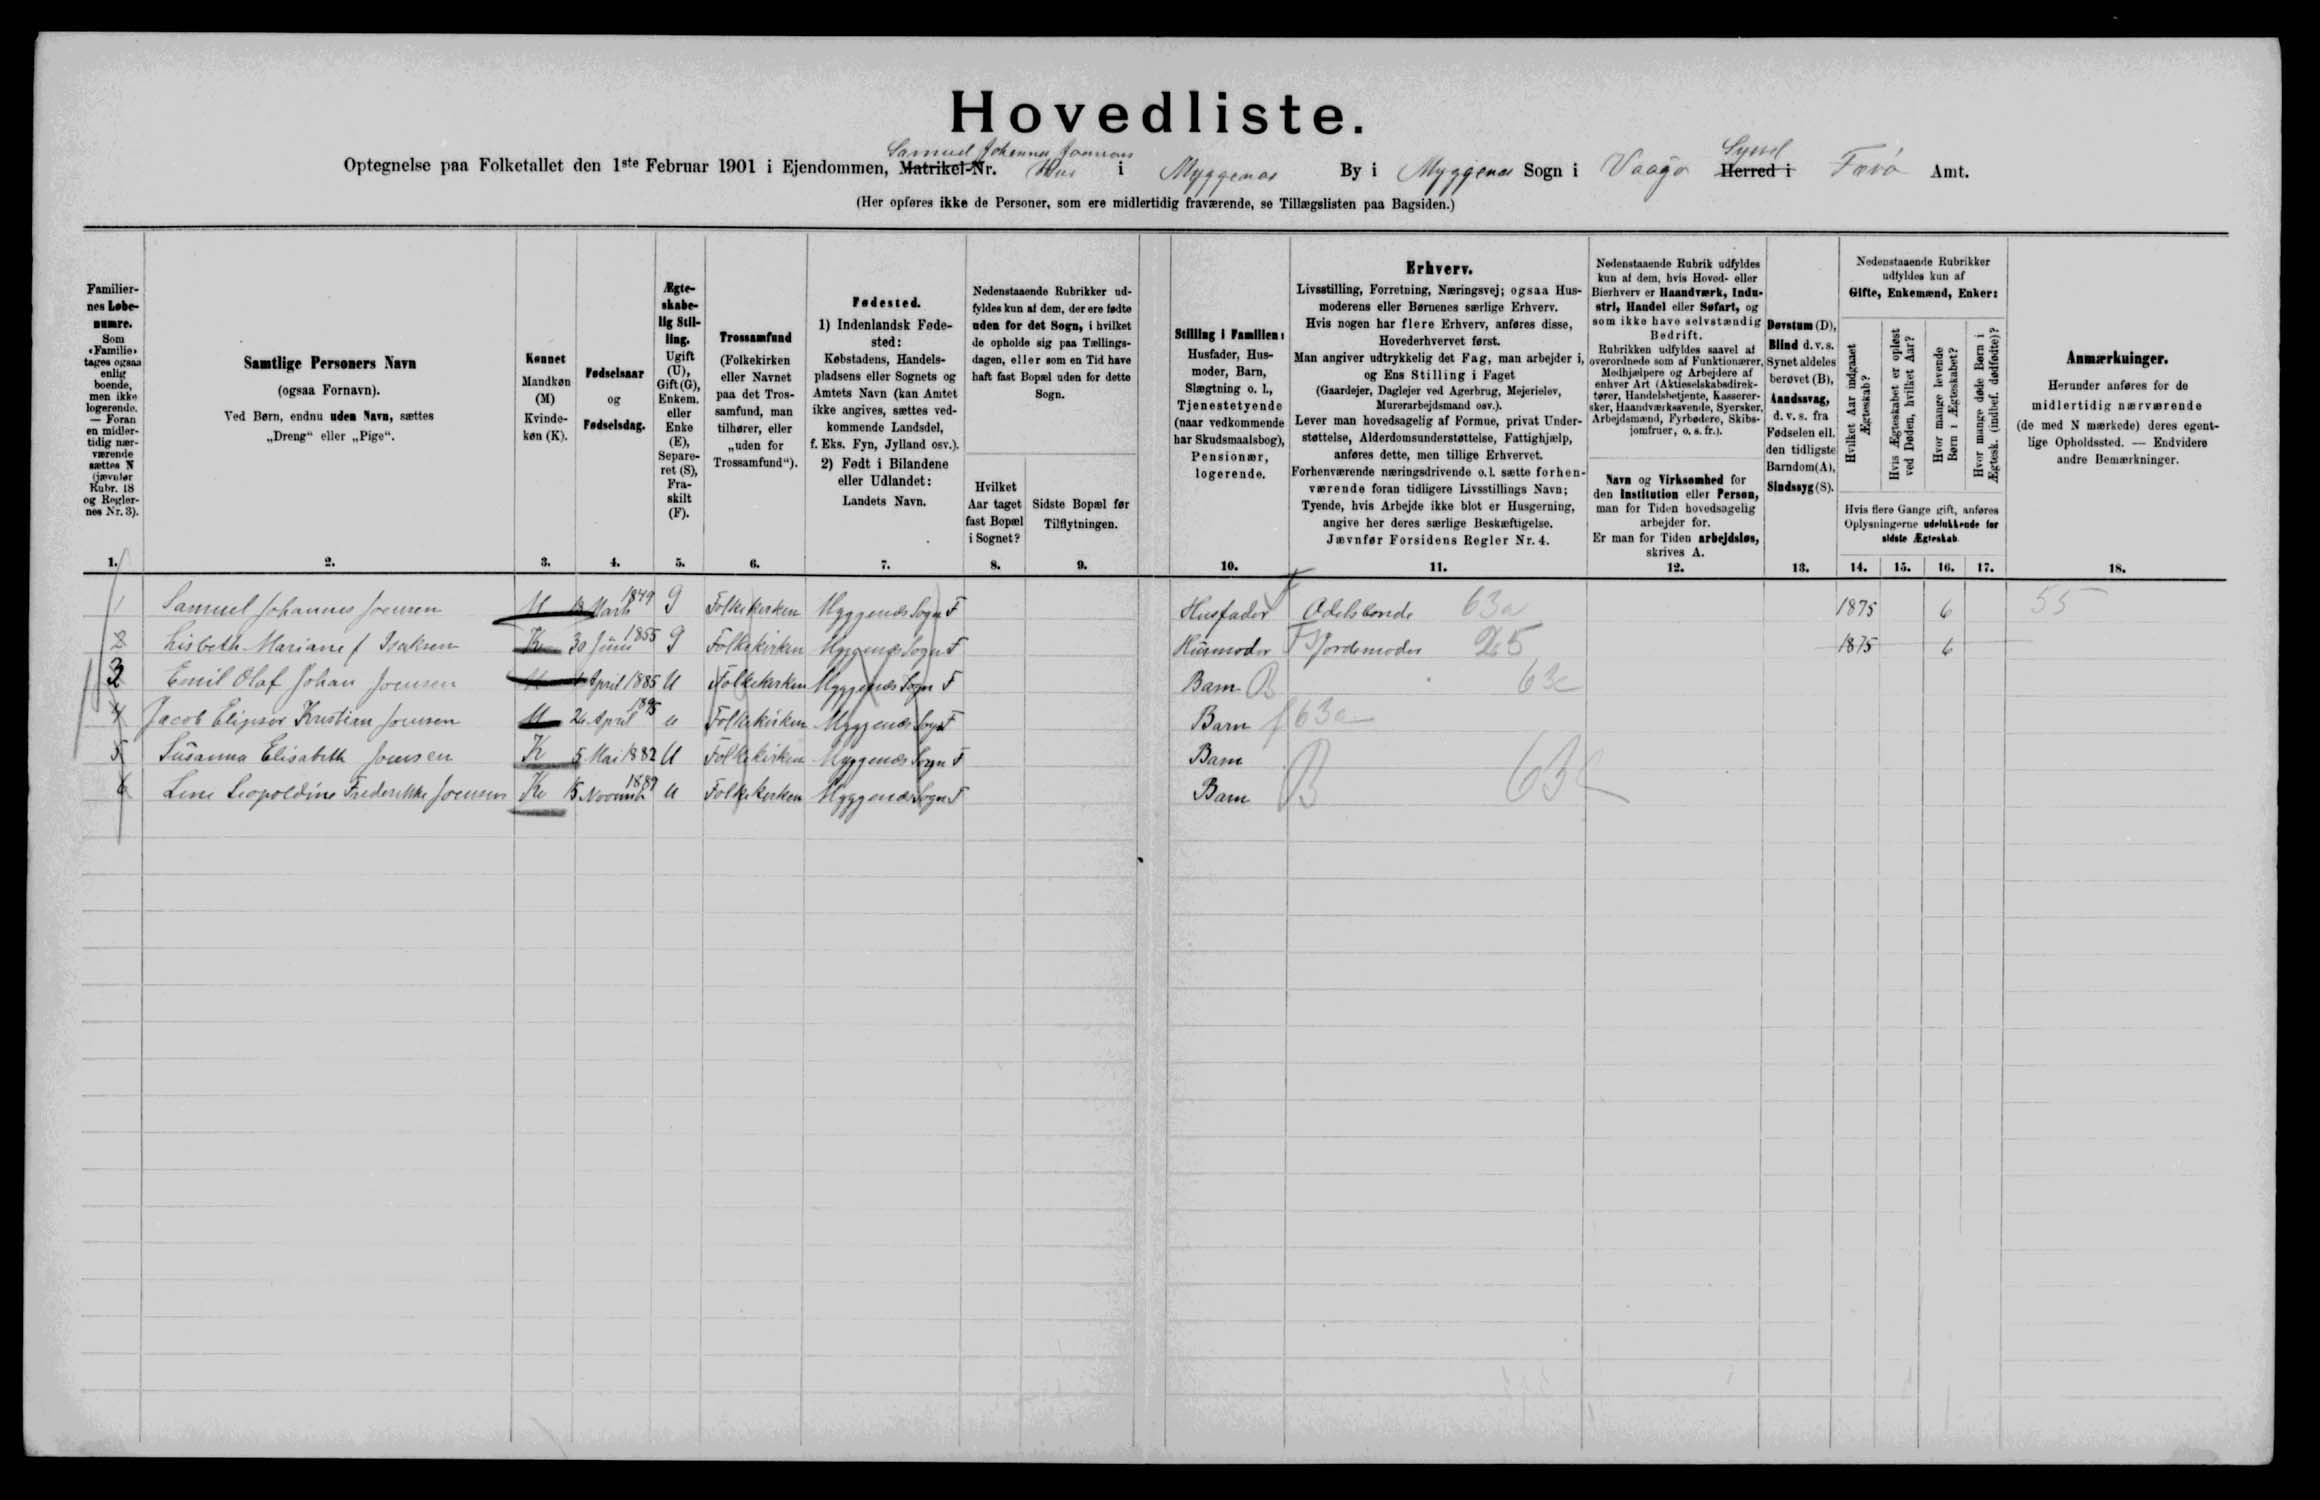 Hovedliste.
Samuel Johannes Joensens Syssel
Optegnelse paa Folketallet den 1ste Februar 1901 i Ejendommen, Matrikel-Nr. Hus i Myggenæs By i Myggenæs Sogn i Vaagø Herred i Færø Amt.
(Her opføres ikke de Personer, som ere midlertidig fraværende, se Tillægslisten paa Bagsiden.)
Familier-
nes Løbe-
numre.
Som
«Familie»
tages ogsaa
enlig
boende,
men ikke
logerende.
— Foran
en midler-
tidig nær-
værende
sættes N
(jævnfør
Rubr. 18
og Regler-
nes Nr. 3).
1.
Samtlige Personers Navn
(ogsaa Fornavn).
Ved Børn, endnu uden Navn, sættes
„Dreng“ eller „Pige“.
2.
Kønnet
Mandkøn
(M)
Kvinde-
køn (K).
3.
Fødselsaar
og
Fødselsdag.
4.
Ægte-
skabe-
lig Stil-
ling.
Ugift
(U),
Gift (G),
Enkem.
eller
Enke
(E),
Separe-
ret (S),
Fra-
skilt
(F).
5.
Trossamfund
(Folkekirken
eller Navnet
paa det Tros-
samfund, man
tilhører, eller
„uden for
Trossamfund“).
6.
Fødested.
1) Indenlandsk Føde-
sted:
Købstadens, Handels-
pladsens eller Sognets og
Amtets Navn (kan Amtet
ikke angives, sættes ved-
kommende Landsdel,
f. Eks. Fyn, Jylland osv.).
2) Født i Bilandene
eller Udlandet:
Landets Navn.
7.
Nedenstaaende Rubrikker ud-
fyldes kun af dem, der ere fødte
uden for det Sogn, i hvilket
de opholde sig paa Tællings-
dagen, eller som en Tid have
haft fast Bopæl uden for dette
Sogn.
Hvilket
Aar taget
fast Bopæl
i Sognet?
8.
Sidste Bopæl før
Tilflytningen.
9.
Stilling i Familien:
Husfader, Hus-
moder, Barn,
Slægtning o. l.,
Tjenestetyende
(naar vedkommende
har Skudsmaalsbog),
Pensionær,
logerende.
10.
Erhverv.
Livsstilling, Forretning, Næringsvej; ogsaa Hus-
moderens eller Børnenes særlige Erhverv.
Hvis nogen har flere Erhverv, anføres disse,
Hovederhvervet først.
Man angiver udtrykkelig det Fag, man arbejder i,
og Ens Stilling i Faget
(Gaardejer, Daglejer ved Agerbrug, Mejerielev,
Murerarbejdsmand osv.).
Lever man hovedsagelig af Formue, privat Under-
støttelse, Alderdomsunderstøttelse, Fattighjælp,
anføres dette, men tillige Erhvervet.
Forhenværende næringsdrivende o. l. sætte forhen-
værende foran tidligere Livsstillings Navn;
Tyende, hvis Arbejde ikke blot er Husgerning,
angive her deres særlige Beskæftigelse.
Jævnfør Forsidens Regler Nr. 4.
11.
Nedenstaaende Rubrik udfyldes
kun af dem, hvis Hoved- eller
Bierhverv er Haandværk, Indu-
stri, Handel eller Søfart, og
som ikke have selvstændig
Bedrift.
Rubrikken udfyldes saavel af
overordnede som af Funktionærer,
Medhjælpere og Arbejdere af
enhver Art (Aktieselskabsdirek-
tører, Handelsbetjente, Kasserer-
sker, Haandværkssvende, Syersker,
Arbejdsmænd, Fyrbødere, Skibs-
jomfruer, o. s. fr.).
Navn og Virksomhed for
den Institution eller Person,
man for Tiden hovedsagelig
arbejder for.
Er man for Tiden arbejdsløs,
skrives A.
12.
Døvstum (D),
Blind d. v. s.
Synet aldeles
berøvet (B),
Aandssvag,
d. v. s. fra
Fødselen ell.
den tidligste
Barndom (A),
Sindssyg (S).
13.
Nedenstaaende Rubrikker
udfyldes kun af
Gifte, Enkemænd, Enker:
Hvilket Aar indgaaet
Ægteskab?
Hvis Ægteskabet er opløst
ved Døden, hvilket Aar?
Hvor mange levende
Børn i Ægteskabet?
Hvor mange døde Børn i
Ægtesk. (indbef. dødfødte)?
Hvis flere Gange gift, anføres
Oplysningerne udelukkende for
sidste Ægteskab.
14. 15. 16. 17.
Anmærkninger.
Herunder anføres for de
midlertidig nærværende
(de med N mærkede) deres egent-
lige Opholdssted. — Endvidere
andre Bemærkninger.
18.
1 Samuel Johannes Joensen M 13 Marts 1849 G Folkekirken Myggenæs Sogn F Husfader Odelsbonde 63a 1875 6 55
2 Lisbeth Mariane f Isaksen Kv 30 Juni 1855 G Folkekirken Myggenæs Sogn F Husmoder Jordemoder 25 1875 6
3 Emil Olaf Johan Joensen M April 1885 U Folkekirken Myggenæs Sogn F Barn B 63c
4 Jacob Elipsør Kristian Joensen M 26 April 1895 U Folkekirken Myggenæs Sogn F Barn f 63a
5 Susanna Elisabeth Joensen K 5 Mai 1882 U Folkekirken Myggenæs Sogn F Barn
6 Line Leopoldine Frederikke Joensen Kv 15 Novemb 1887 U Folkekirken Myggenæs Sogn F Barn B 63c